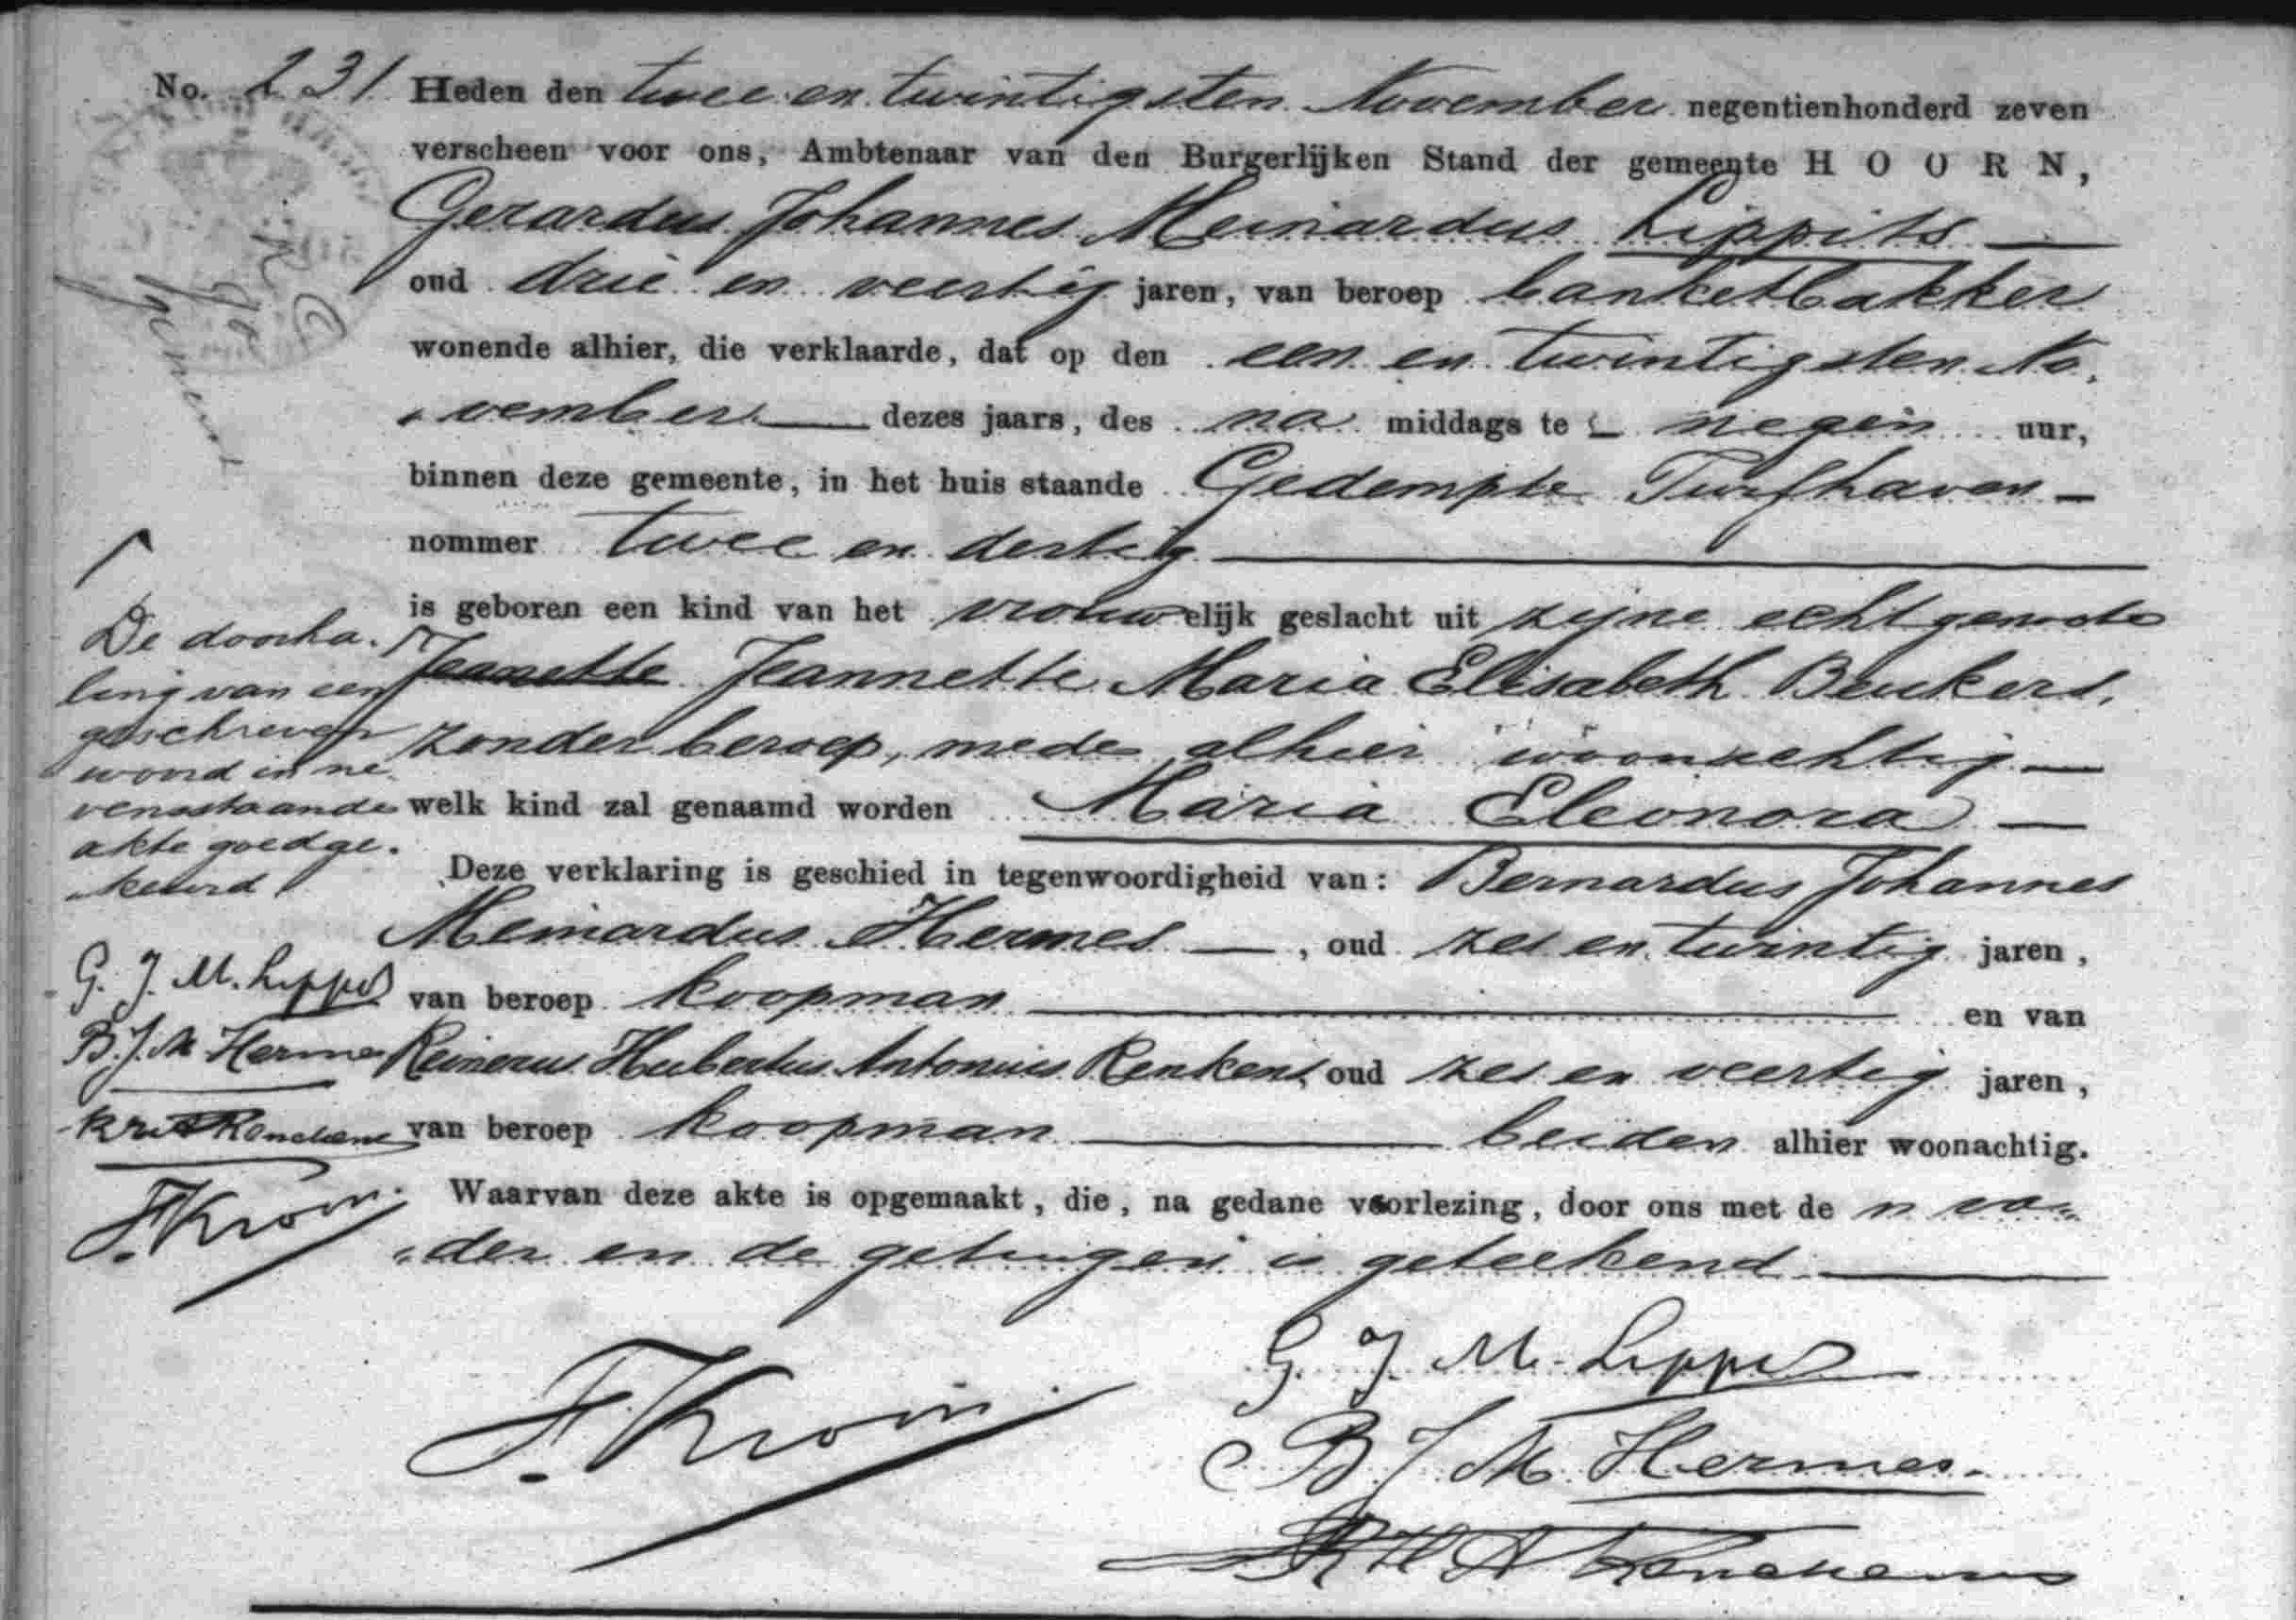 No. 231 Heden den twee en twintigsten November negentienhonderd zeven
verscheen voor ons, Ambtenaar van den Burgerlijken Stand der gemeente HOORN,
Gerardus Johannes Meinardus Lippits
oud drie en veertig jaren, van beroep banketbakker
wonende alhier, die verklaarde, dat op den een en twintigsten No-
vember dezes jaars, des na middags te negen uur,
binnen deze gemeente, in het huis staande Gedempte Turfhaven
nommer twee en dertig
is geboren een kind van het vrouwelijk geslacht uit zijne echtgenoote
Jeanette Jeannette Maria Elisabeth Beukers,
zonder beroep, mede alhier woonachtig
welk kind zal genaamd worden Maria Eleonora
Deze verklaring is geschied in tegenwoordigheid van: Bernardus Johannes
Meinardus Hermes, oud zes en twintig jaren,
van beroep koopman en van
Reinerus Hubertus Antonius Renkens, oud zes en veertig jaren,
van beroep koopman beiden alhier woonachtig.
Waarvan deze akte is opgemaakt, die, na gedane voorlezing, door ons met den va-
der en de getuigen is geteekend
De doorha-
ling van een
geschreven
woord in ne-
vensstaande
akte goedge-
keurd
G. J. M. Lippits
B. J. M. Hermes
F. Kroon
F. Kroon
G. J. M. Lippits
B J M Hermes